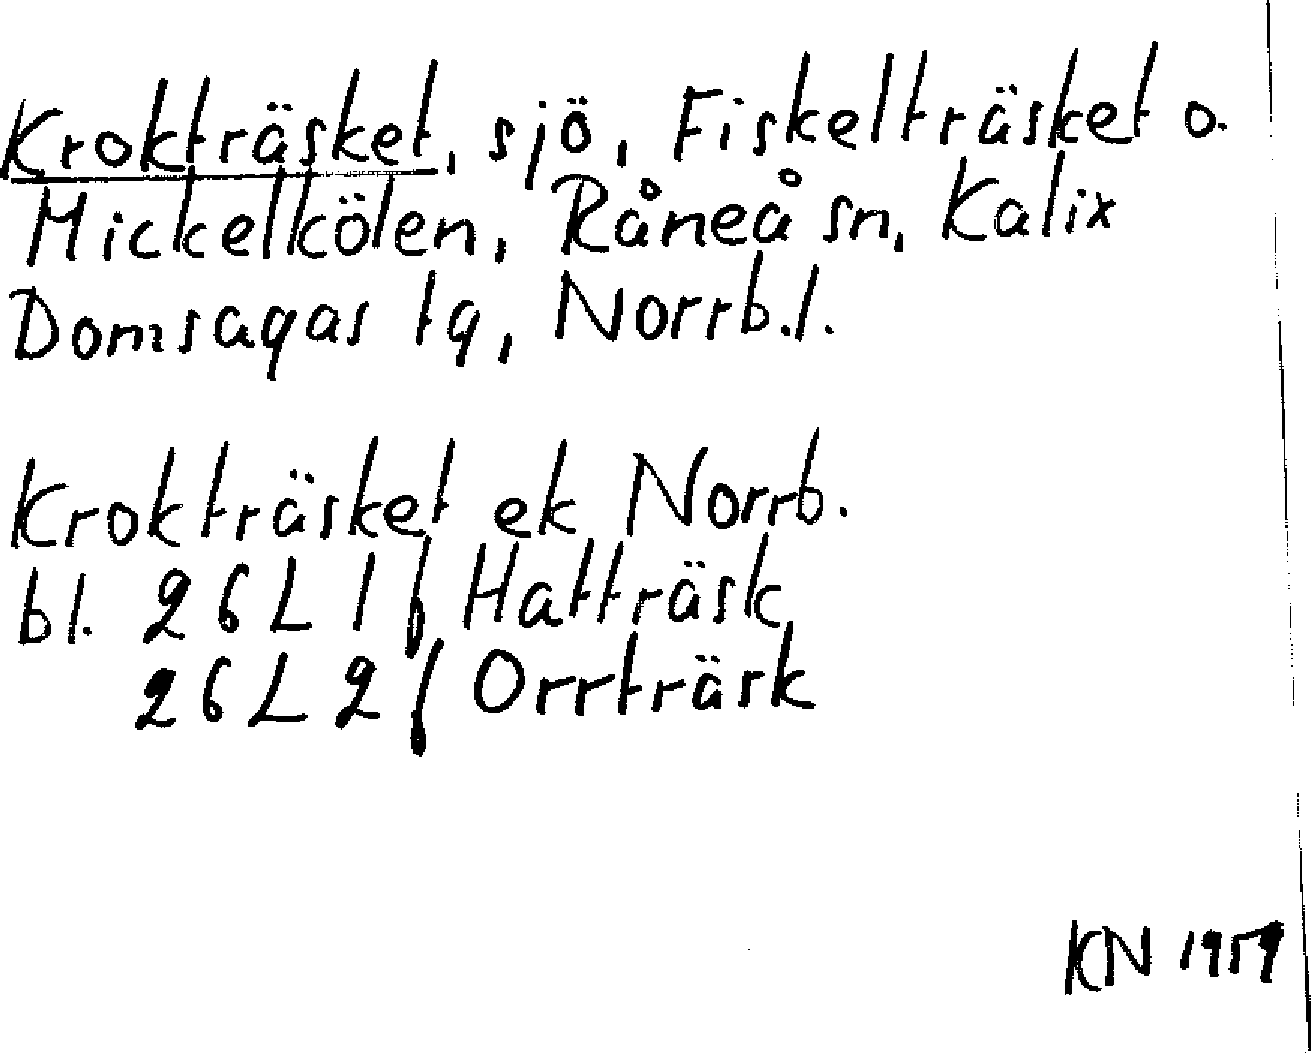 Krokträsket, sjö, Fiskelträsket o.
Mickelkölen, Råneå sn, Kalix
Domsagas tg, Norrb.l.
Krokträsket ek Norrb.
bl. 26 L 1 f Hatträsk
26 L 2 f Orrträsk
KN 1959